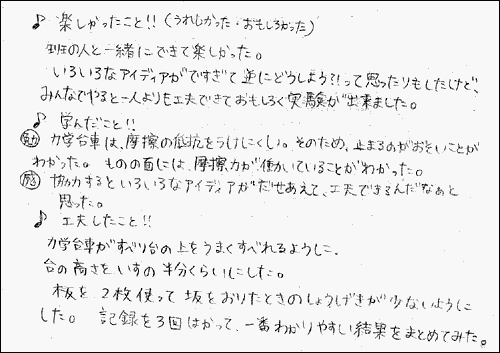 ♪ 楽しかったこと!!(うれしかった・おもしろかった)
班の人と一緒にできて楽しかった。
いろいろなアイディアがですぎて逆にどうしよう?!って思ったりもしたけど、
みんなでやると一人よりも工夫できておもしろく実験が出来ました。
♪ 学んだこと!!
力学台車は、摩擦の抵抗をうけにくい。そのため、止まるのがおそいことが
わかった。ものの面には、摩擦力が働いていることがわかった。
感 協力するといろいろなアイディアがだせあえて、工夫できるんだなぁと
思った。
♪ 工夫したこと!!
力学台車がすべり台の上をうまくすべれるように、
台の高さをいすの半分くらいにした。
板を2枚使って坂をおりたときのしょうげきが少ないように
した。 記録を3回はかって、一番わかりやすい結果をまとめてみた。